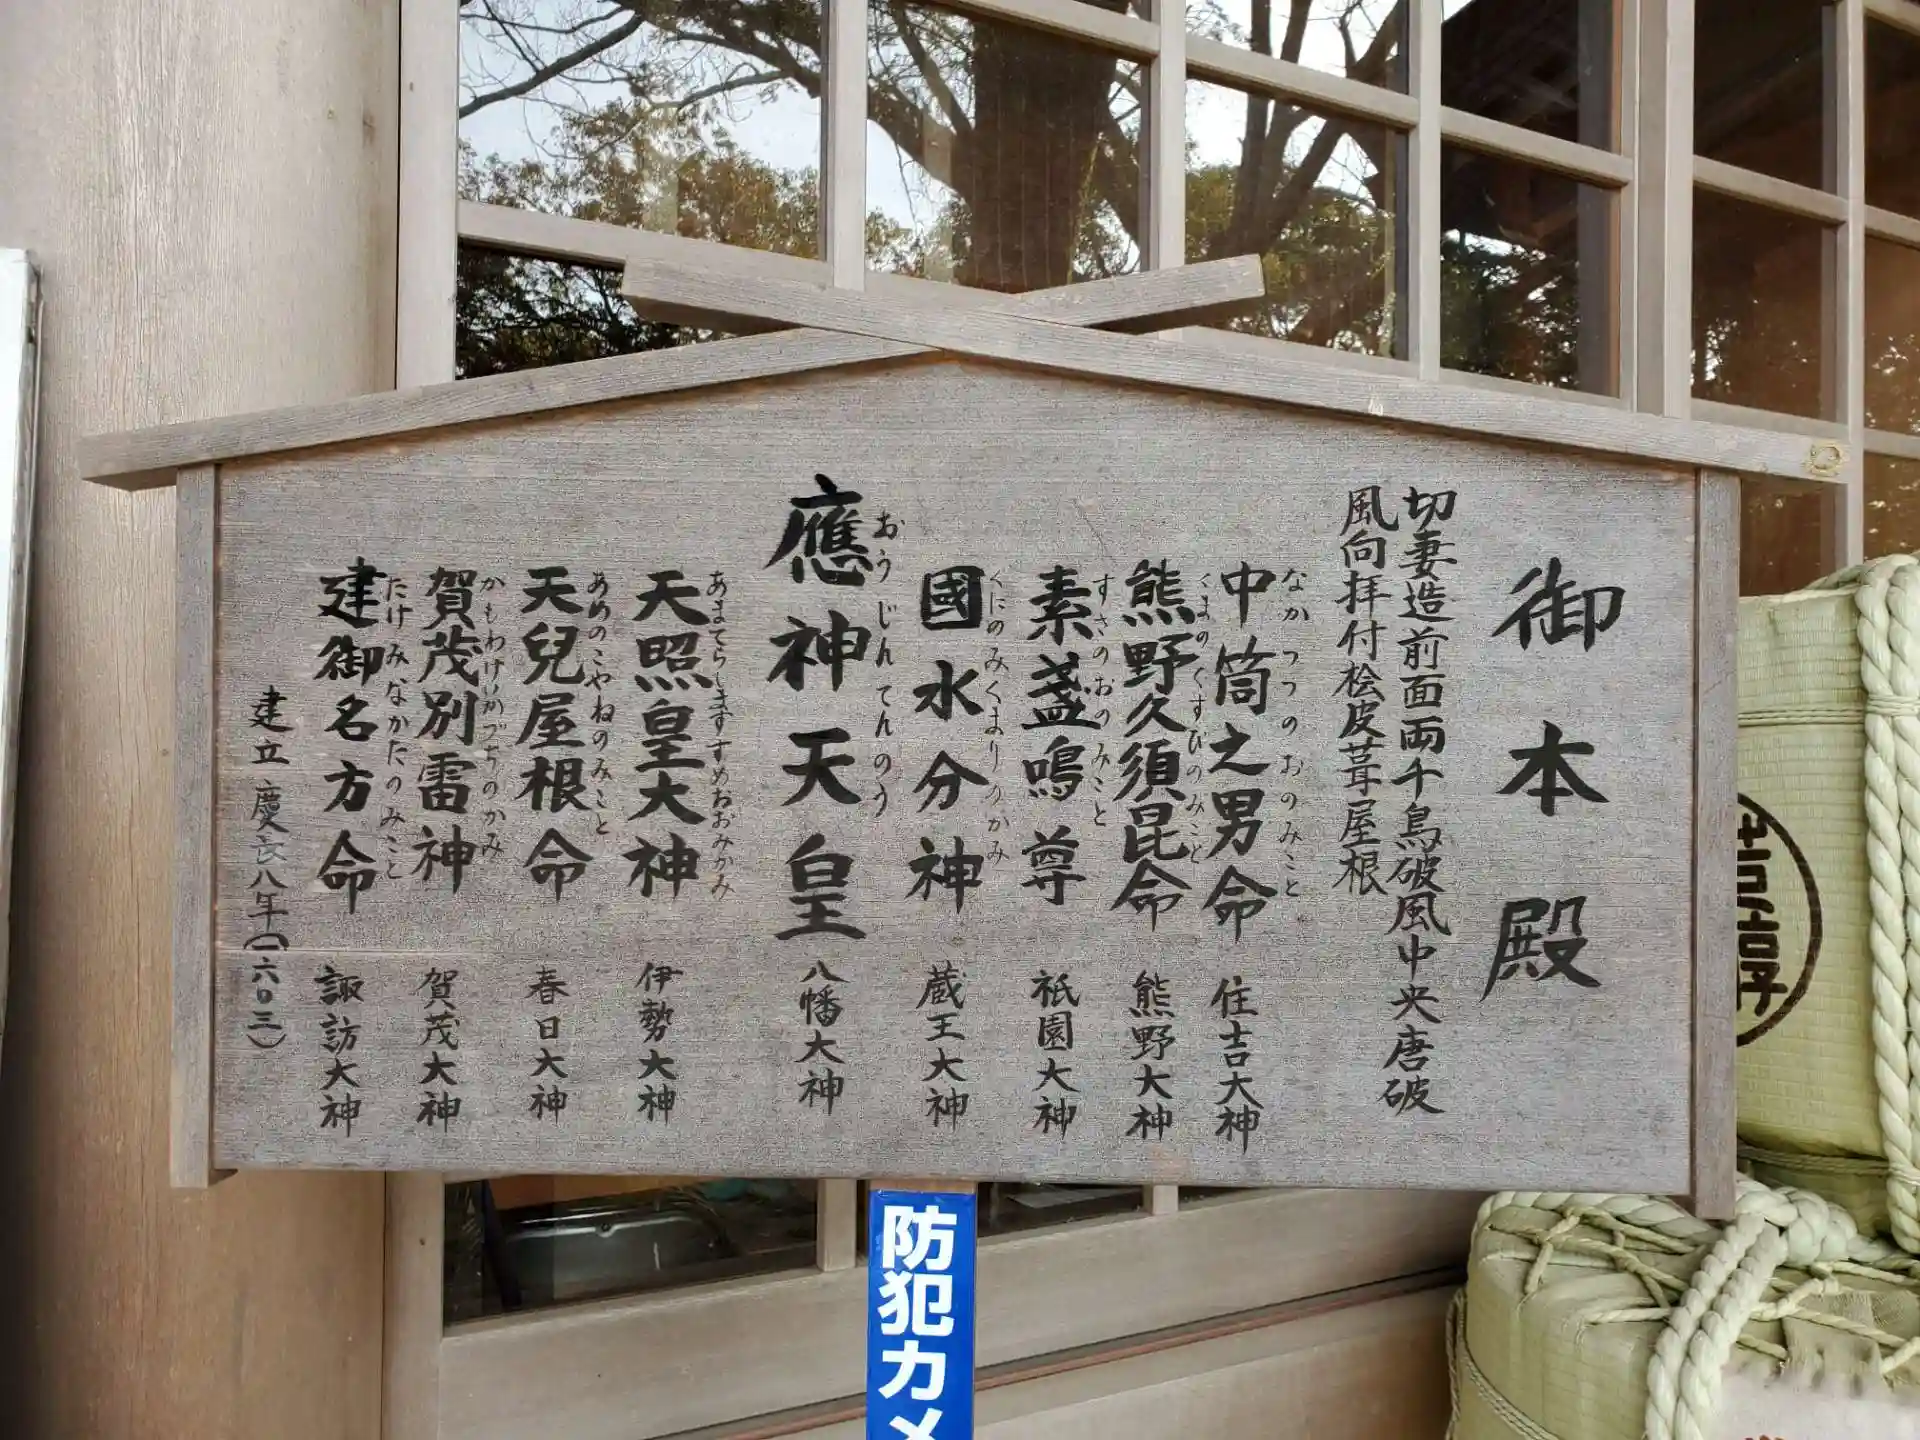 御本殿
切妻造前面両千鳥破風中央唐破
風向拝付桧皮葺屋根
中筒之男命 住吉大神
なかつつのおのみこと
熊野久須昆命 熊野大神
くまのくすびのみこと
素盞鳴尊 祇園大神
すさのおのみこと
國水分神 蔵王大神
くにのみくまりのかみ
應神天皇 八幡大神
おうじんてんのう
天照皇大神 伊勢大神
あまてらしますすめおおみかみ
天兒屋根命 春日大神
あめのこやねのみこと
賀茂別雷神 賀茂大神
かもわけいかづちのかみ
建御名方命 諏訪大神
たけみなかたのみこと
建立 慶長八年(一六〇三)
防犯カメ